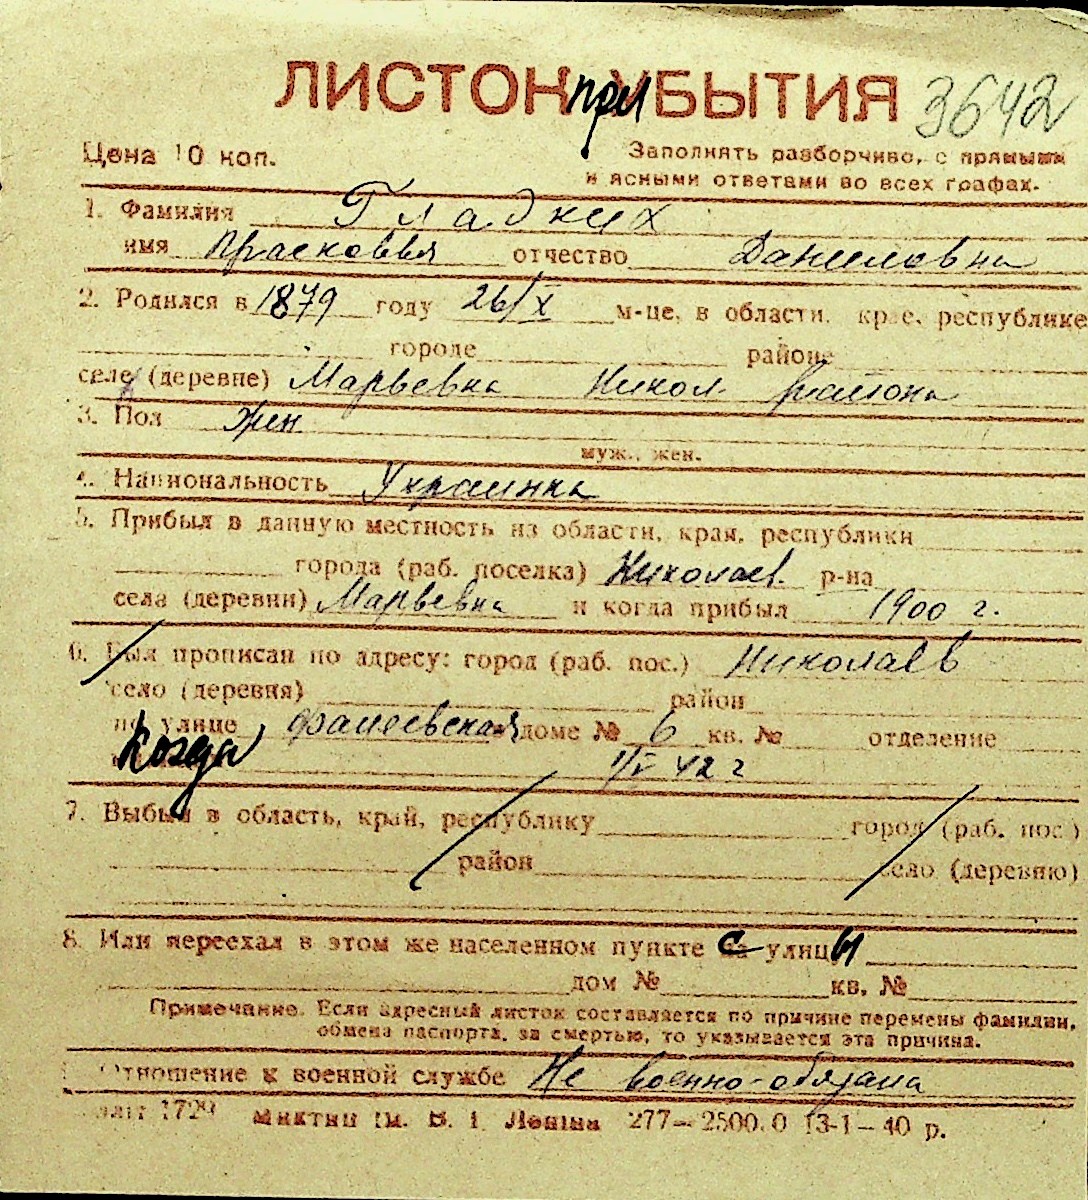 ЛИСТОК при УБЫТИЯ 3642
Цена 10 коп.
Заполнять разборчиво, с прямыми
и ясными ответами во всех графах.
1. Фамилия Гладких
имя Прасковья отчество Даниловна
2. Родился в 1879 году 26/X м-це, в области, крае, республике
городе районе
селе (деревне) Марьевка Никол. района
3. Пол Жен
муж., жен.
4. Национальность Украинка
5. Прибыл в данную местность из области, края, республики
города (раб. поселка) Николаев. р-на
села (деревни) Марьевка и когда прибыл 1900 г.
6. Был прописан по адресу: город (раб. пос.) Николаев
село (деревня) район
по улице Фалеевская доме № 6 кв. № отделение
когда 1/V 42 г
7. Выбыл в область, край, республику город (раб. пос.)
район село (деревню)
8. Или переехал в этом же населенном пункте с улицы
дом № кв. №
Примечание. Если адресный листок составляется по причине перемены фамилии,
обмена паспорта, за смертью, то указывается эта причина.
Отношение к военной службе Не военно-обязана
1729 им. В. І. Леніна 277—2500.0 13-1—40 р.